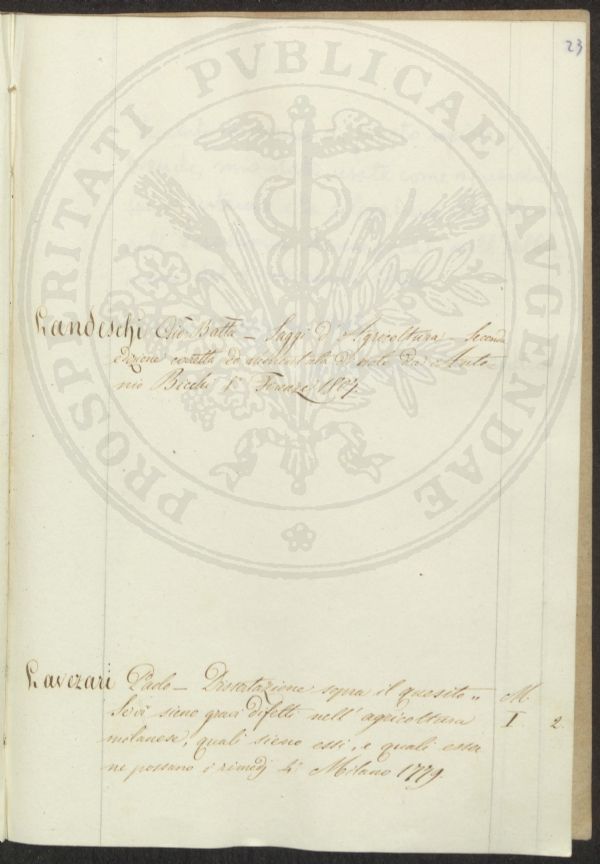 23
PROSPERITATI PVBLICAE AVGENDAE
Landeschi Gio Batta – Saggi d'Agricoltura – Seconda
edizione corretta ed aumentata di note da Anto-
nio Bicchi 8° Firenze 1807.
Lavezari Paolo – Dissertazione sopra il quesito „ M.
Se vi sieno gravi difetti nell'agricoltura I 2.
milanese, quali sieno essi, e quali esser
ne possano i rimedj 4° Milano 1779.